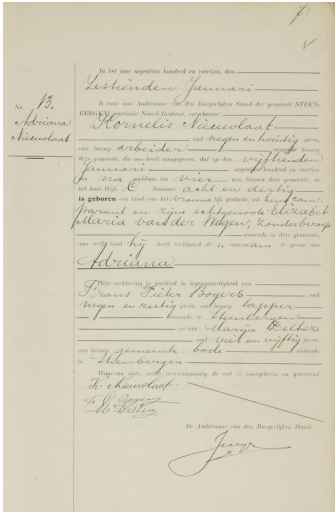 7.
In het jaar negentien honderd en veertien, den
Zestienden Januari
is voor ons Ambtenaar van den Burgerlijken Stand der gemeente STEEN-
BERGEN, provincie Noord-Brabant, verschenen:
No. 13.
Adriana
Nieuwlaat
Kornelis Nieuwlaat
oud negen en dertig jaren,
van beroep arbeider wonende binnen
deze gemeente, die ons heeft aangegeven, dat op den vijftienden
Januari negentien honderd en veertien
des na middags ten vier ure, binnen deze gemeente, in
het huis Wijk C Nummer acht en dertig
is geboren een kind van het vrouwelijk geslacht, uit hem com-
parant en zijne echtgenoote Elizabet
Maria van der Wegen, zonder beroep
wonende in deze gemeente,
aan welk kind hij heeft verklaard de voornaam te geven van
Adriana
Deze verklaring is geschied in tegenwoordigheid van
Frans Pieter Bogers oud
negen en zestig jaren, van beroep tapper
wonende te Steenbergen
en van Marijn Dekker
oud vier en vijftig jaren,
van beroep gemeente-bode wonende
te Steenbergen
Waarvan akte, welke overeenkomstig de wet is voorgelezen en geteekend
K. Nieuwlaat.
De Ambtenaar van den Burgerlijken Stand,